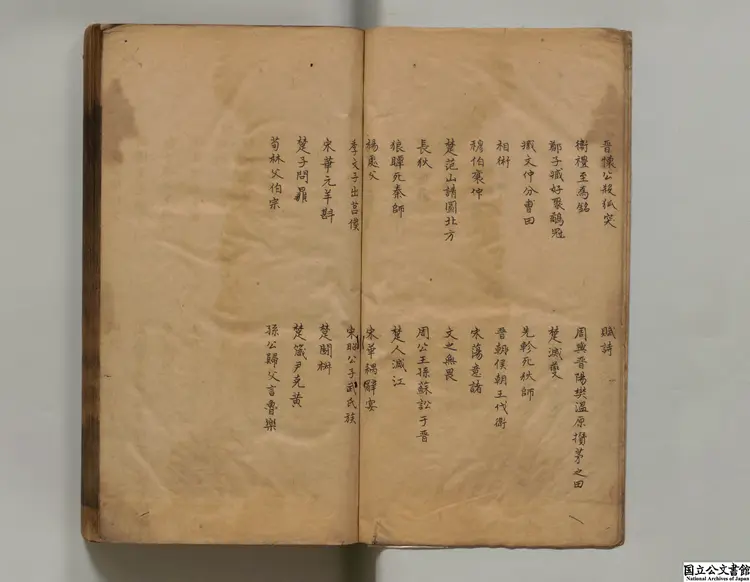 晉懷公殺狐突
賦詩
衛禮至為銘
周與晉陽樊溫原攢茅之田
鄭子臧好聚鷸冠
楚滅夔
臧文仲分曹田
先軫死狄師
相衛
晉朝侯朝王伐衛
穆伯襄仲
宋蕩意諸
楚范山請圖北方
文之無畏
長狄
周公王孫蘇訟于晉
狼瞫死秦師
楚人滅江
楊處父
宋華耦辭宴
季文子出莒僕
宋昭公子武氏族
宋華元羊斟
楚鬬椒
楚子問鼎
楚箴尹克黃
荀林父伯宗
孫公歸父言魯樂
国立公文書館
National Archives of Japan